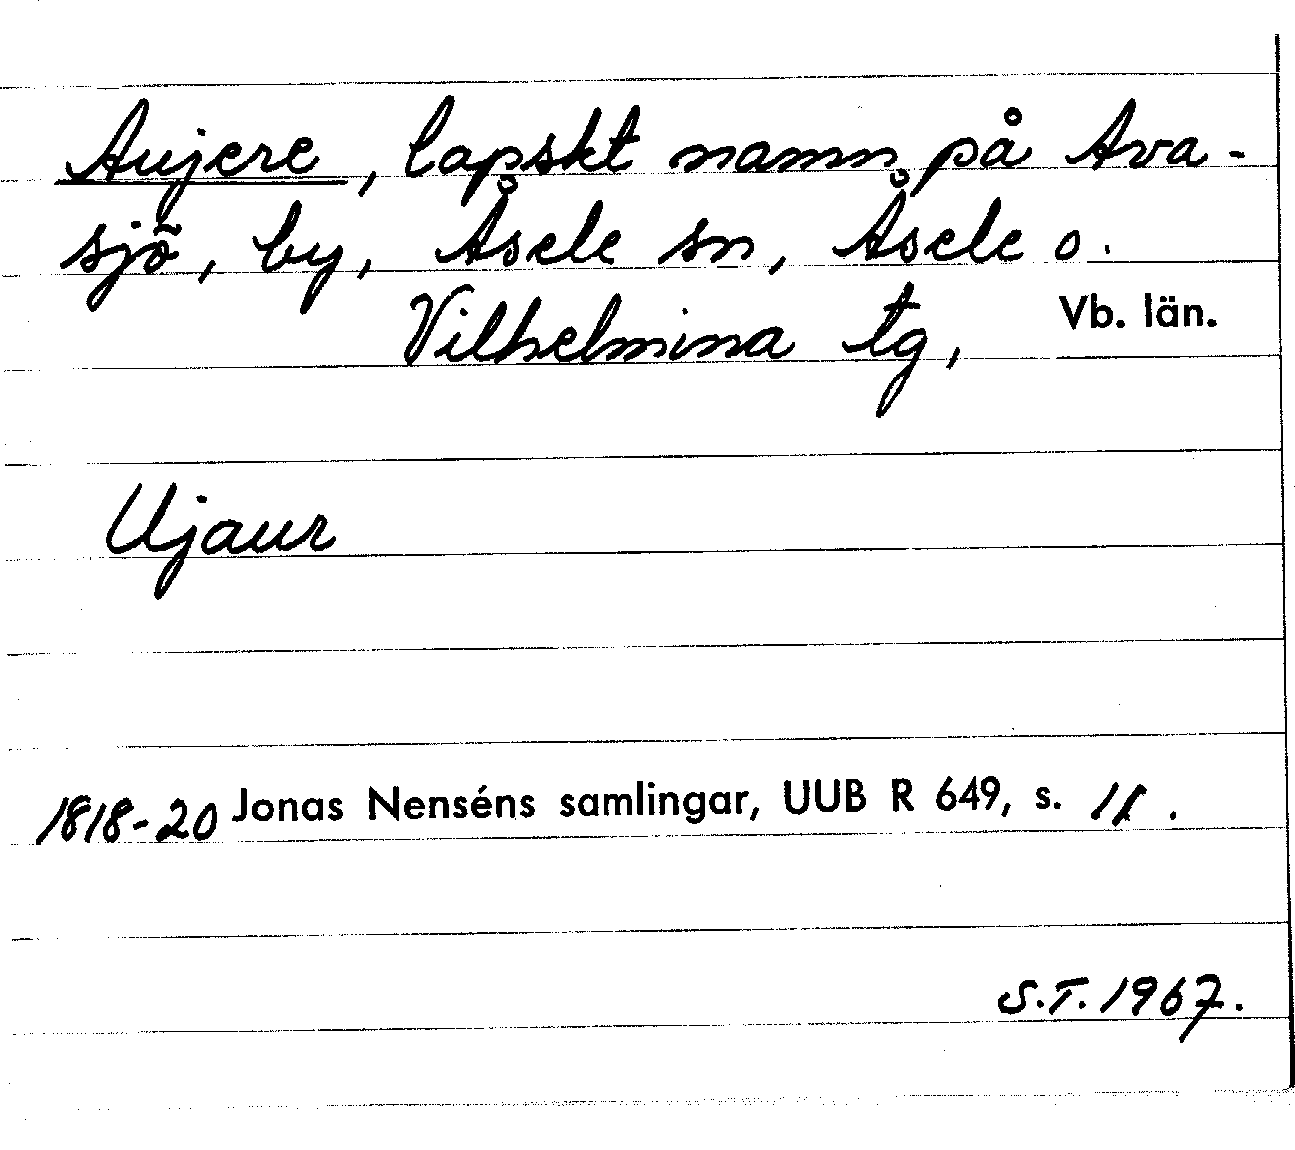 Aujere, lapskt namn på Ava-
sjö, by, Åsele sn, Åsele o.
Vilhelmina tg, Vb. län.
Ujaur
1818-20 Jonas Nenséns samlingar, UUB R 649, s.
S.T. 1967.